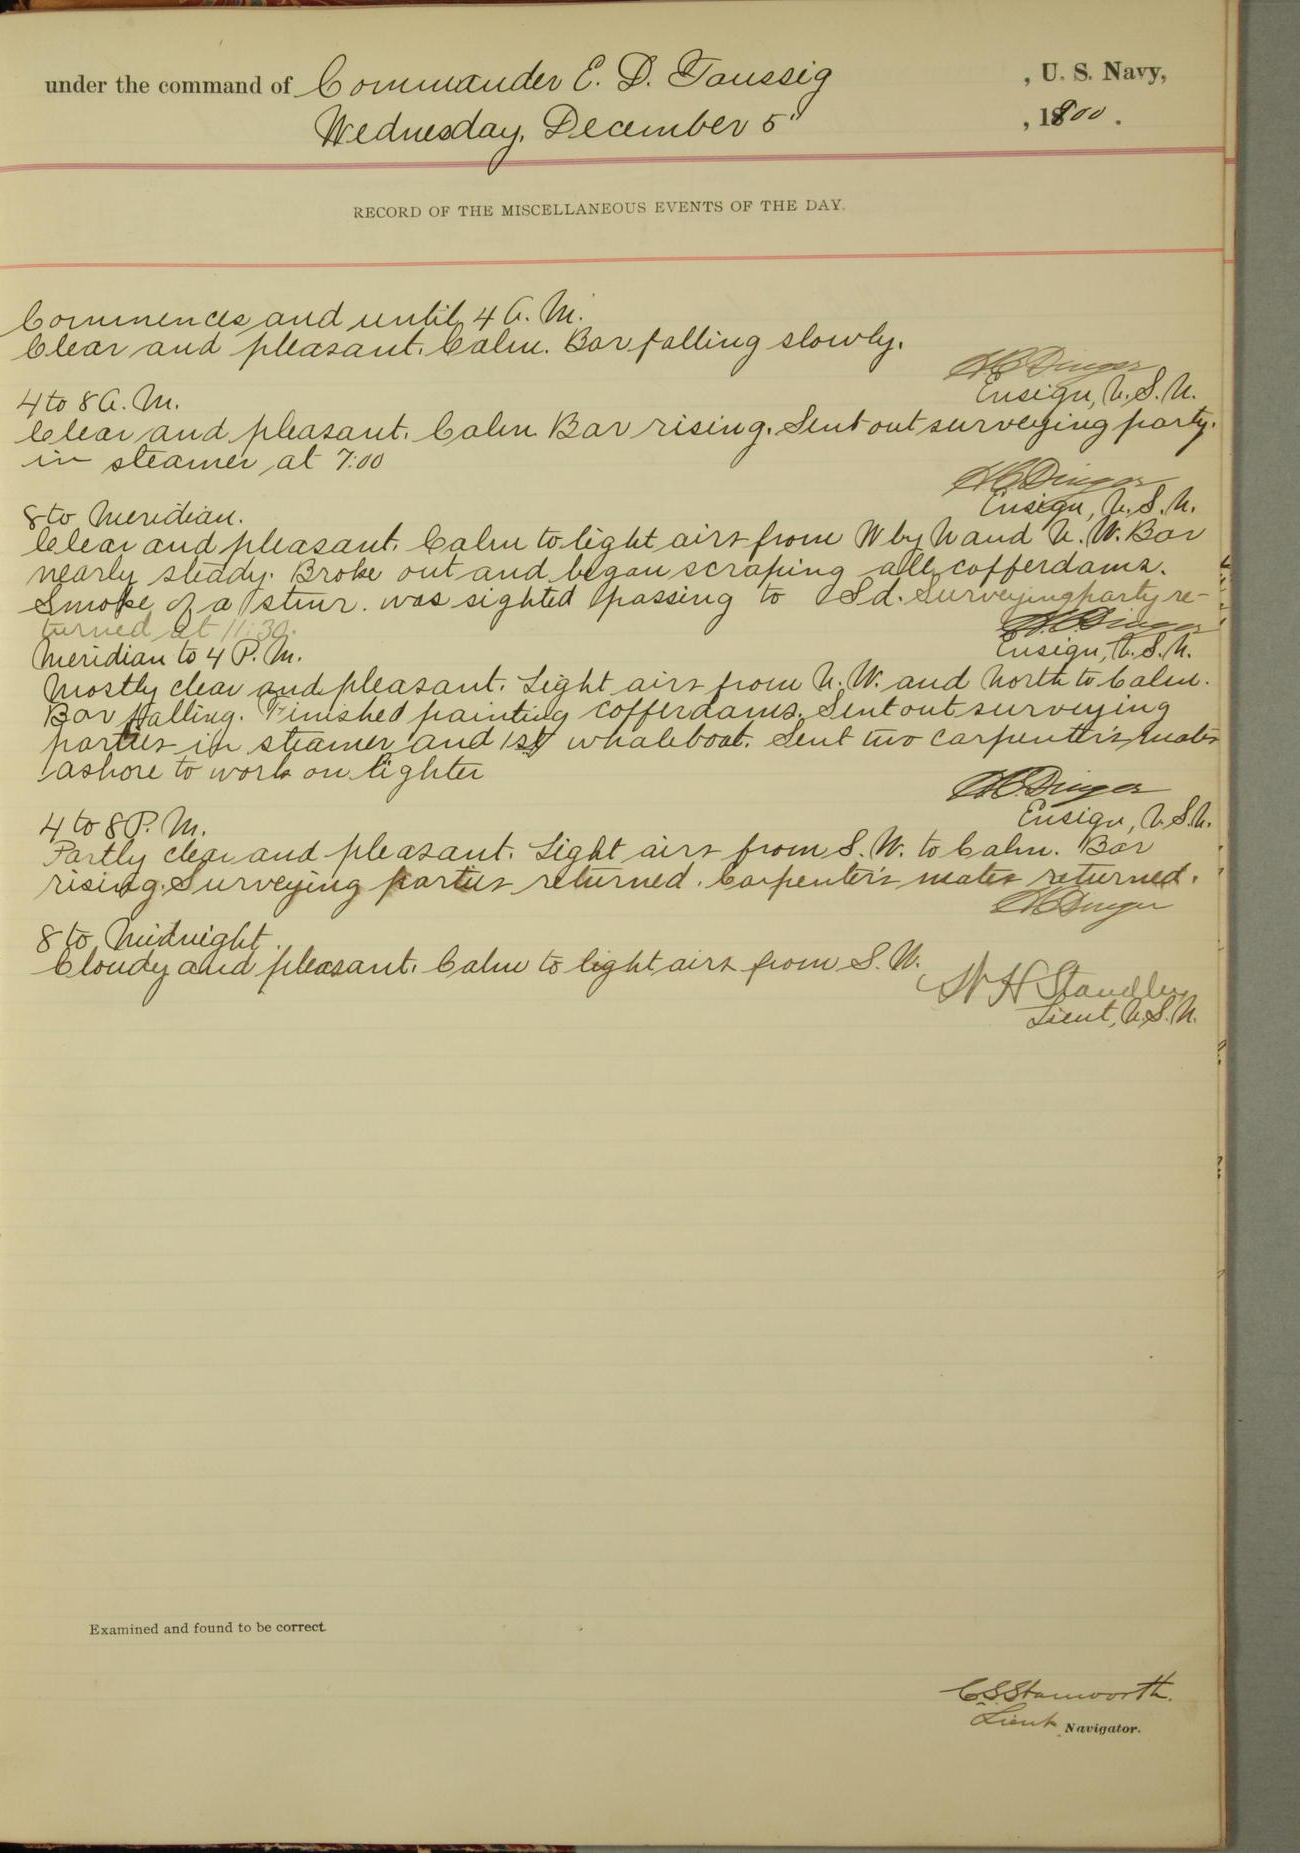 under the command of Commander E. D. Taussig , U. S. Navy,
Wednesday, December 5" , 1900 .
RECORD OF THE MISCELLANEOUS EVENTS OF THE DAY.
Commences and until 4 A. M.
Clear and pleasant. Calm. Bar falling slowly.
H C Dinger
Ensign, U. S. N.
4 to 8 A. M.
Clear and pleasant. Calm. Bar rising. Sent out surveying party.
in steamer at 7:00
H C Dinger
Ensign, U. S. N.
8 to Meridian.
Clear and pleasant. Calm to light airs from W by N and N. W. Bar
nearly steady. Broke out and began scraping all cofferdams.
Smoke of a stmr. was sighted passing to Sd. Surveying party re-
turned at 11:30.
H. C. Dinger
Ensign, U. S. N.
Meridian to 4 P. M.
Mostly clear and pleasant. Light airs from N. W. and North to Calm.
Bar falling. Finished painting cofferdams. Sent out surveying
parties in steamer and 1st whaleboat. Sent two carpenter's mates
ashore to work on lighter
H C Dinger
Ensign, U. S. N.
4 to 8 P. M.
Partly clear and pleasant. Light airs from S. W. to Calm. Bar
rising. Surveying parties returned. Carpenter's mates returned.
H C Dinger
8 to Midnight.
Cloudy and pleasant. Calm to light airs from S. W.
W H Standley
Lieut, U. S. N.
Examined and found to be correct.
C S Stanworth.
Lieut Navigator.